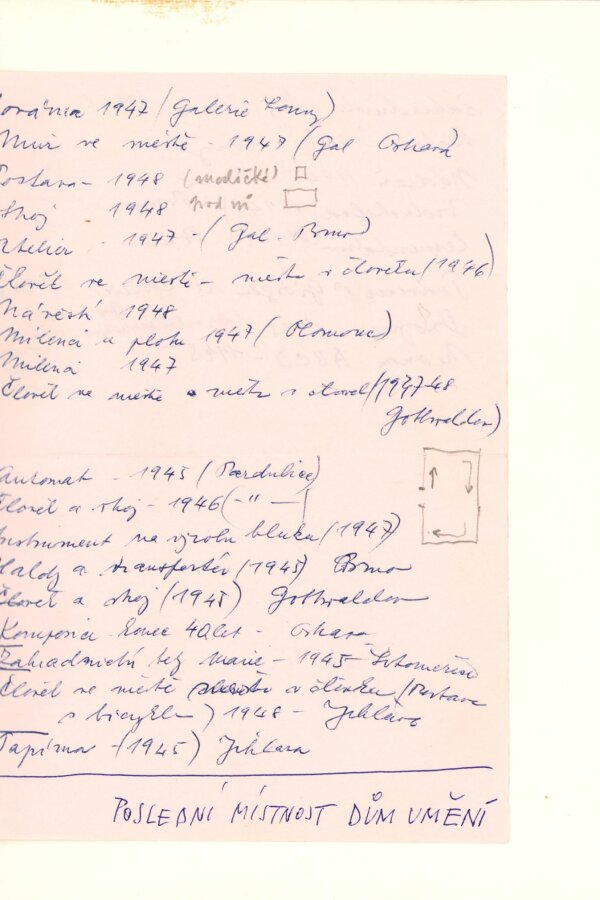 1947 (Galerie Louny)
Muž ve městě - 1947 (Gal Ostrava)
Postava - 1948 (modičké)
Stroj 1948 pod ní
Atelier - 1947 - (Gal. Brno)
Člověk ve městě - město v člověku (1946)
Návěstí 1948
Milenci u plotu 1947 (Olomouc)
Milenci 1947
Člověk ve městě - město v člověk (1947-48
Gottwaldov)
Automat - 1945 (Pardubice)
Člověk a stroj - 1946 (-"-)
Instrument na výrobu hluku (1947)
Haldy a transportér (1945) Brno
Člověk a stroj (1945) Gottwaldov
Kompozice konec 40 let - Ostrava
Zahradnictví 1945 - Litoměřice
Člověk ve městě (Postava
s bicyklem) 1948 - Jihlava
(1945) Jihlava
POSLEDNÍ MÍSTNOST DŮM UMĚNÍ